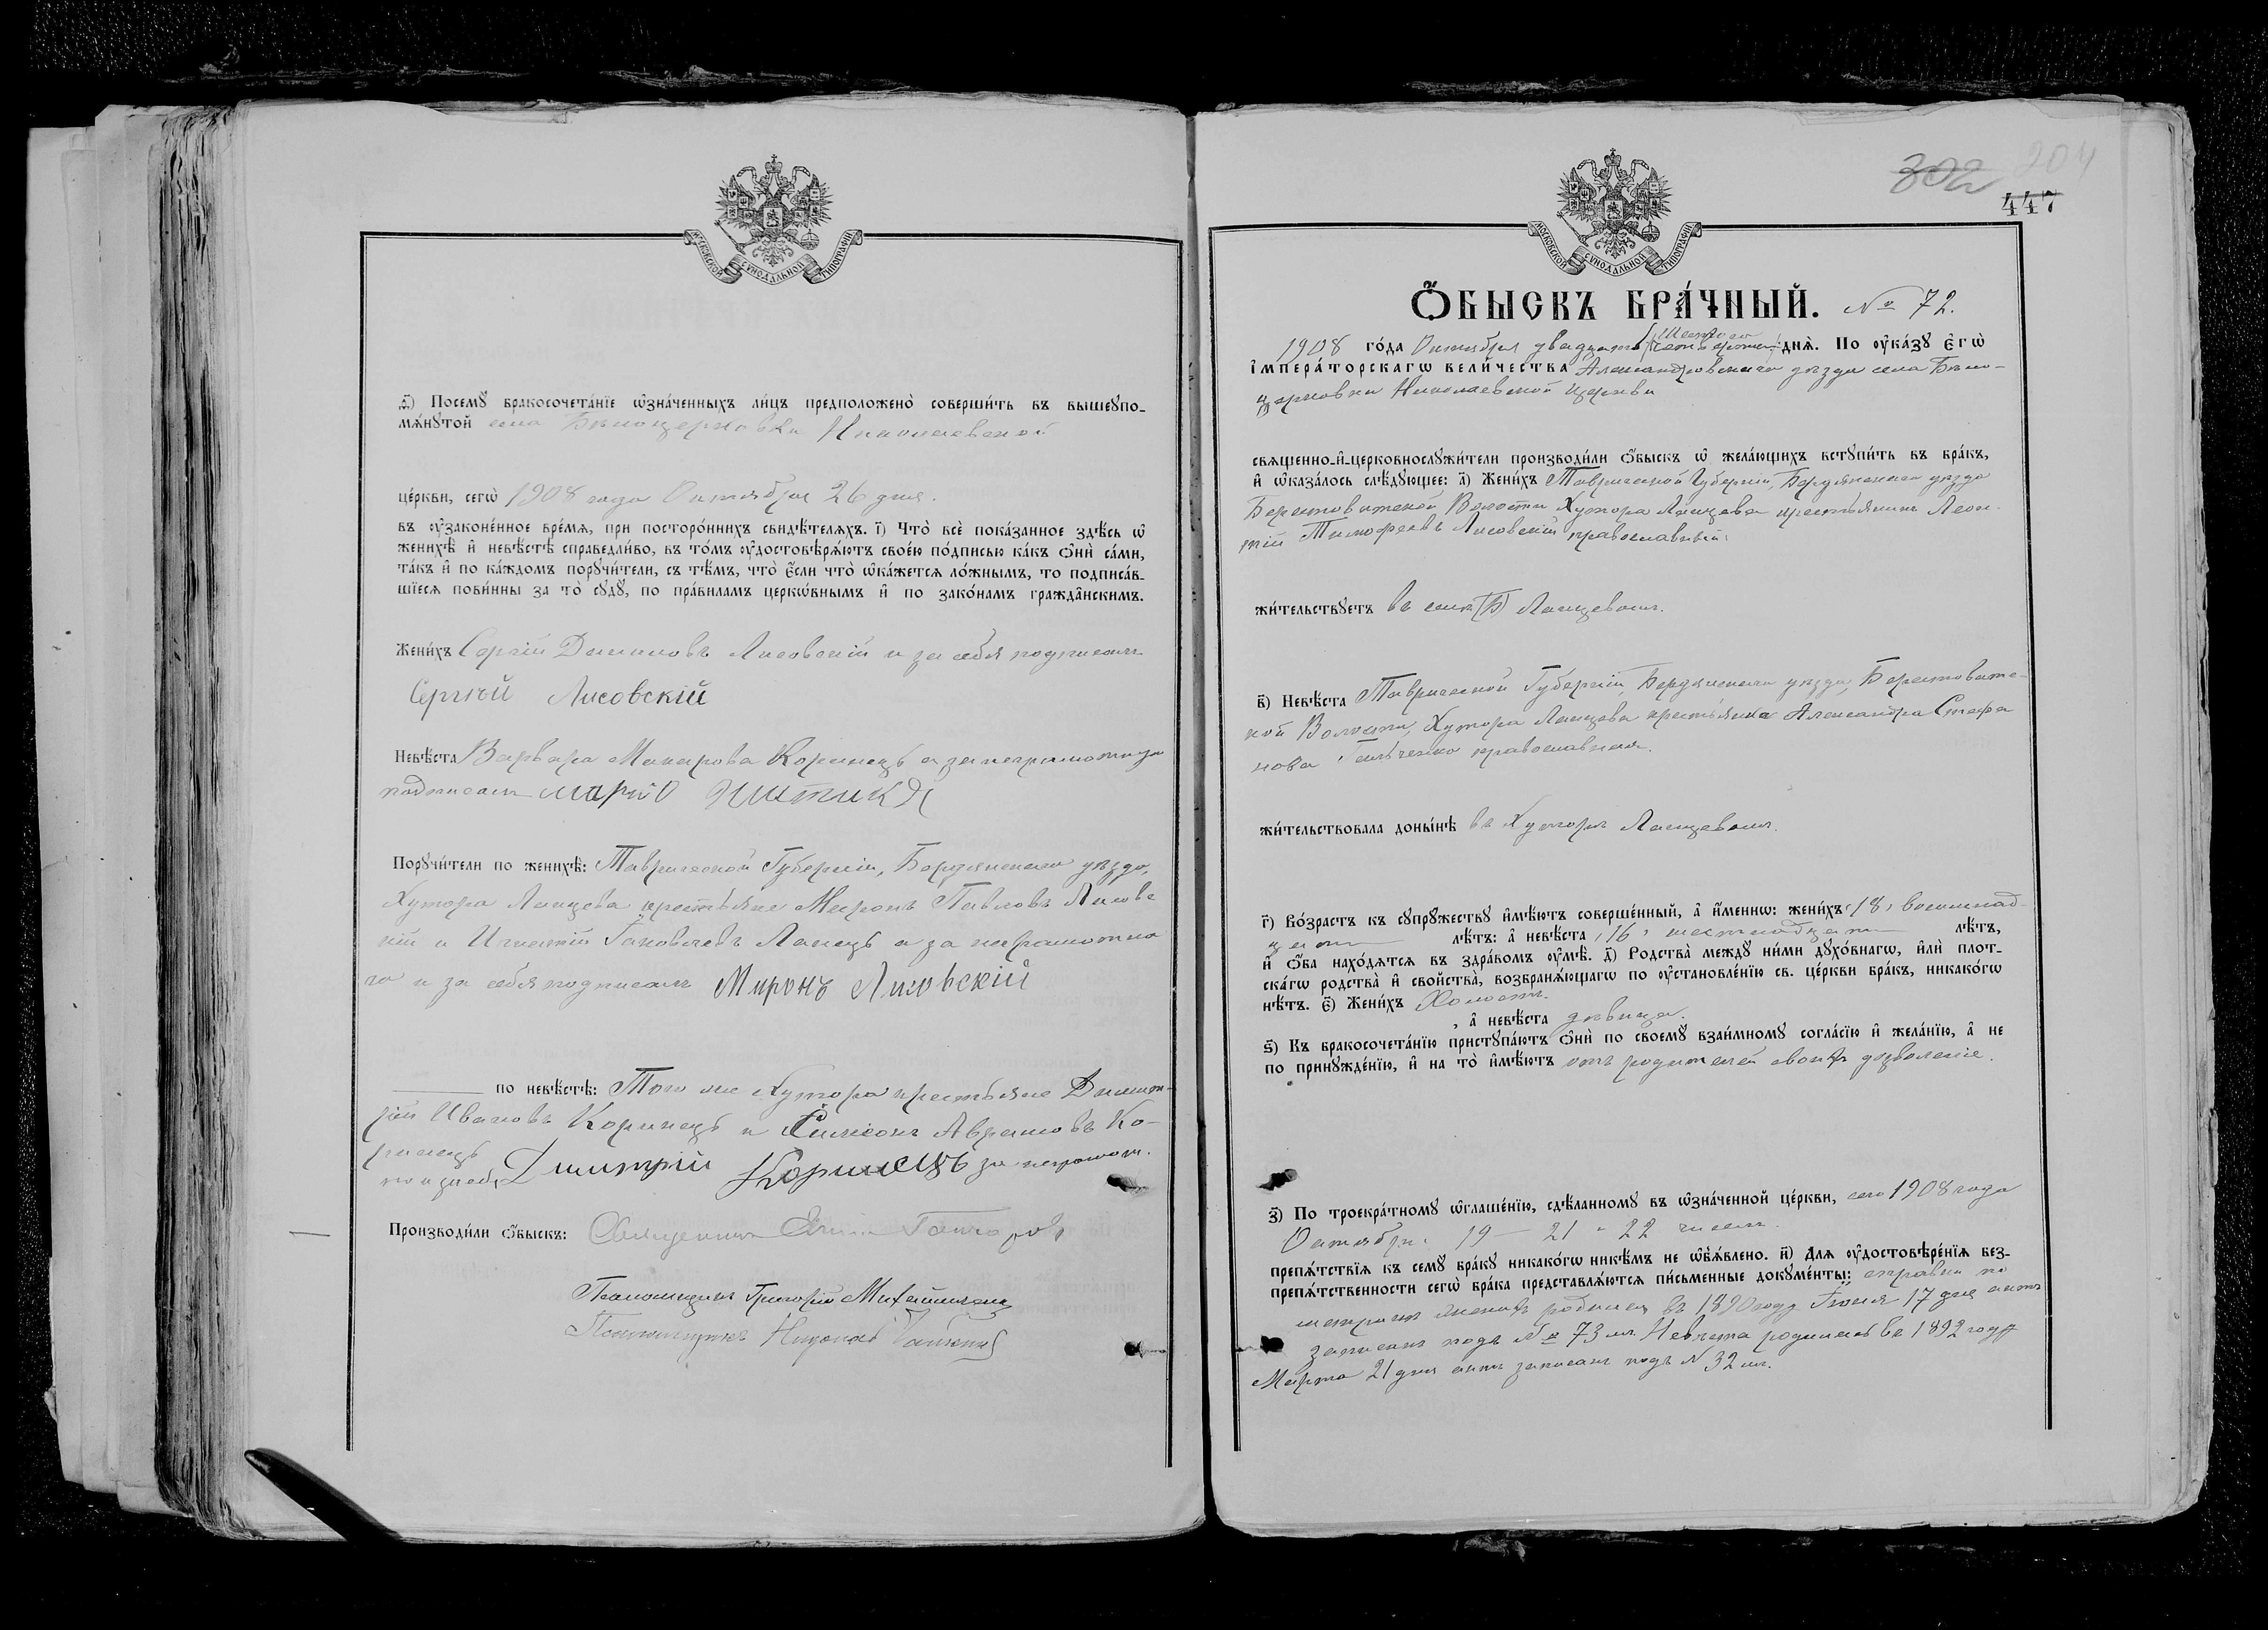 МОСКОВСКОЙ СѴНОДАЛЬНОЙ ТИПОГРАФІИ
ѳ҃) Посемꙋ̀ бракосочета́нїе ѡ҆зна́ченныхъ ли́цъ предположено̀ соверши́ть въ вышеꙋпо-
мѧ́нꙋтой села Бѣлоцерковки Николаевской
це́ркви, сегѡ̀ 1908 года Октября 26 дня.
въ ᲂу҆зако́не́нное вре́мѧ, при посторо́ннихъ свидѣ́телѧхъ. і҃) Что̀ всѐ пока́занное здѣ́сь ѡ҆
женихѣ̀ и҆ невѣ́стѣ справедли́во, въ то́мъ ᲂу҆достовѣрѧ́ютъ свое́ю по́дписью ка́къ ѻ҆нѝ са́ми,
та́къ и҆ по ка́ждомъ порꙋчи́тели, съ тѣ́мъ, что̀ є҆́сли что̀ ѡ҆ка́жетсѧ ло́жнымъ, то подписа́в-
шїесѧ пови́нны за то̀ сꙋдꙋ̀, по пра́виламъ церко́внымъ и҆ по зако́намъ гражда́нскимъ.
Жени́хъ Сергій Лисовскій и за себя подписалъ
Сергѣй Лисовскій
Невѣ́ста Варвара Макарова Коринецъ а за неграмотную
подписалъ
Порꙋчи́тели по женихѣ̀: Таврической Губерніи, Бердянскаго уѣзда,
Хутора Ланцева крестьяне Миронъ Павловъ Лисовс
кій и Игнатій Яковлевъ Ланецъ а за неграмотна
го и за себя подписалъ Миронъ Лисовскій
по невѣ́стѣ: Того же Хутора крестьяне Димит-
рій Ивановъ Коринецъ и Симеонъ Аврамовъ Ко-
ринецъ Димитрій Коринецъ за неграмот.
Производи́ли ѻ҆́быскъ: Священникъ
Псаломщикъ Григорій
Псаломщикъ
302 204
447
МОСКОВСКОЙ СѴНОДАЛЬНОЙ ТИПОГРАФІИ
Ѻ҆́БЫСКЪ БРА́ЧНЫЙ. № 72.
шестого
1908 го́да Октября двадцать днѧ̀. По ᲂу҆ка́зꙋ Є҆гѡ̀
І҆мпера́торскагѡ вели́чества Александровскаго уѣзда села Бѣло-
церковки Николаевской церкви
свѧще́нно-и҆-церковнослꙋжи́тели производи́ли ѻ҆́быскъ ѡ҆ жела́ющихъ встꙋпи́ть въ бра́къ,
и҆ ѡ҆каза́лось слѣ́дꙋющее: а҃) Жени́хъ Таврической Губерніи, Бердянскаго уѣзда
Берестоватской Волости Хутора Ланцева крестьянинъ Леон-
тій Тимофеевъ Лисовскій православный.
жи́тельствꙋетъ въ Ланцевомъ.
в҃) Невѣ́ста Таврической Губерніи, Бердянскаго уѣзда, Берестоватс-
кой Волости, Хутора Ланцева крестьянка Александра Стефа
нова православная.
жи́тельствовала доны́нѣ въ Хуторѣ Ланцевомъ.
г҃) Во́зрастъ къ сꙋпрꙋ́жествꙋ и҆мѣ́ютъ соверше́нный, а҆ и҆́меннѡ: жени́хъ 18, восемнад-
цать лѣ́тъ: а҆ невѣ́ста 16, шестнадцать лѣ́тъ,
и҆ ѻ҆́ба нахо́дѧтсѧ въ здра́вомъ ᲂу҆мѣ̀. д҃) Родства̀ междꙋ ни́ми дꙋхо́внагѡ, и҆лѝ плот-
ска́гѡ родства̀ и҆ сво́йства̀, возбранѧ́ющагѡ по ᲂу҆становле́нїю св. це́ркви бра́къ, никако́гѡ
нѣ́тъ. є҃) Жени́хъ Холостъ.
, а҆ невѣ́ста дѣвица.
ѕ҃) Къ бракосочета́нїю пристꙋпа́ютъ ѻ҆нѝ по своемꙋ̀ взаи́мномꙋ согла́сїю и҆ жела́нїю, а҆ не
по принꙋжде́нїю, и҆ на то̀ и҆мѣ́ютъ отъ родителей своихъ дозволеніе.
з҃) По троекра́тномꙋ ѡ҆глаше́нїю, сдѣ́ланномꙋ въ ѡ҆зна́ченной це́ркви, сего 1908 года
Октября 19 – 21 и 22 чиселъ.
препѧ́тствїѧ къ семꙋ̀ бра́кꙋ никако́гѡ никѣ́мъ не ѡ҆б̾ѧ́влено. и҃) Длѧ ᲂу҆достовѣре́нїѧ без-
препѧ́тственности сегѡ̀ бра́ка представлѧ́ютсѧ пи́сьменные докꙋме́нты: справки по
метрикѣ женихъ родился въ 1890 году Іюня 17 дня актъ
записанъ подъ № 73 мъ. Невѣста родилась въ 1892 году
Марта 21 дня актъ записанъ подъ № 32 мъ.